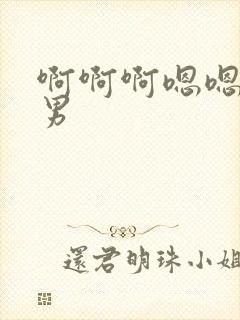 啊啊啊嗯嗯
男
還君明珠小姐